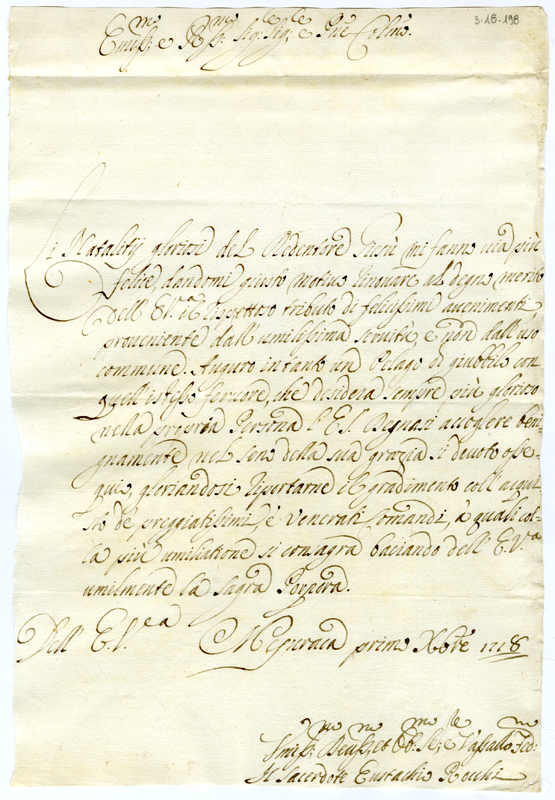 3-18-198
Em.mo e R.mo Sig.r Sig.r e P̃ne Colmo.
Li Natalitij gloriosi del Redentore Giesù mi fanno via più
felice dandomi giusto motivo al degno merito
Dell' E.V.a tributo di felicissimi avenimenti
proveniente dall' umilissima servitù, e non dall' uso
commune. Auguro intanto un Pelago di giubbilo con
quell' istesso fervore, che desidera sempre più glorioso
nella propria Persona l' E.S. Degnasi accogliere beni-
gnamente nel seno della sua grazia sì devoto osse-
quio, gloriandosi riportarne il gradimento coll' acqui-
sto de preggiatissimi, e venerati Comandi, à quali col-
la più umiliatione si consagra baciando dell' E.V.a
umilmente la Sagra Porpora.
Dell' E.V.ea Mesuraca primo Xbre 1718
Vassallo
Il Sacerdote Eustachio Rocchi